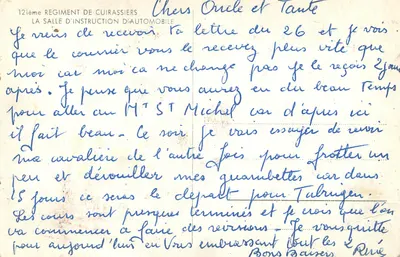 12ième REGIMENT DE CUIRASSIERS
LA SALLE D'INSTRUCTION D'AUTOMOBILE
Chers Oncle et Tante
Je viens de recevoir ta lettre du 26 et je vois
que le courrier vous le recevez plus vite que
moi car moi ca ne change pas je le reçois 2 jours
après. Je pense que vous aurez eu du beau temps
pour aller au Mt St Michel car d'après ici
il fait beau - Ce soir je vais essayer de revoir
ma cavalière de l'autre fois pour frotter un
peu et dérouiller mes guambettes car dans
15 jours ce sera le départ pour
Les cours sont presques terminés et je crois que l'on
va commencer à faire des revisions - Je vous quitte
pour aujourd'hui en vous embrassant tout les 2
Bons Baisers René